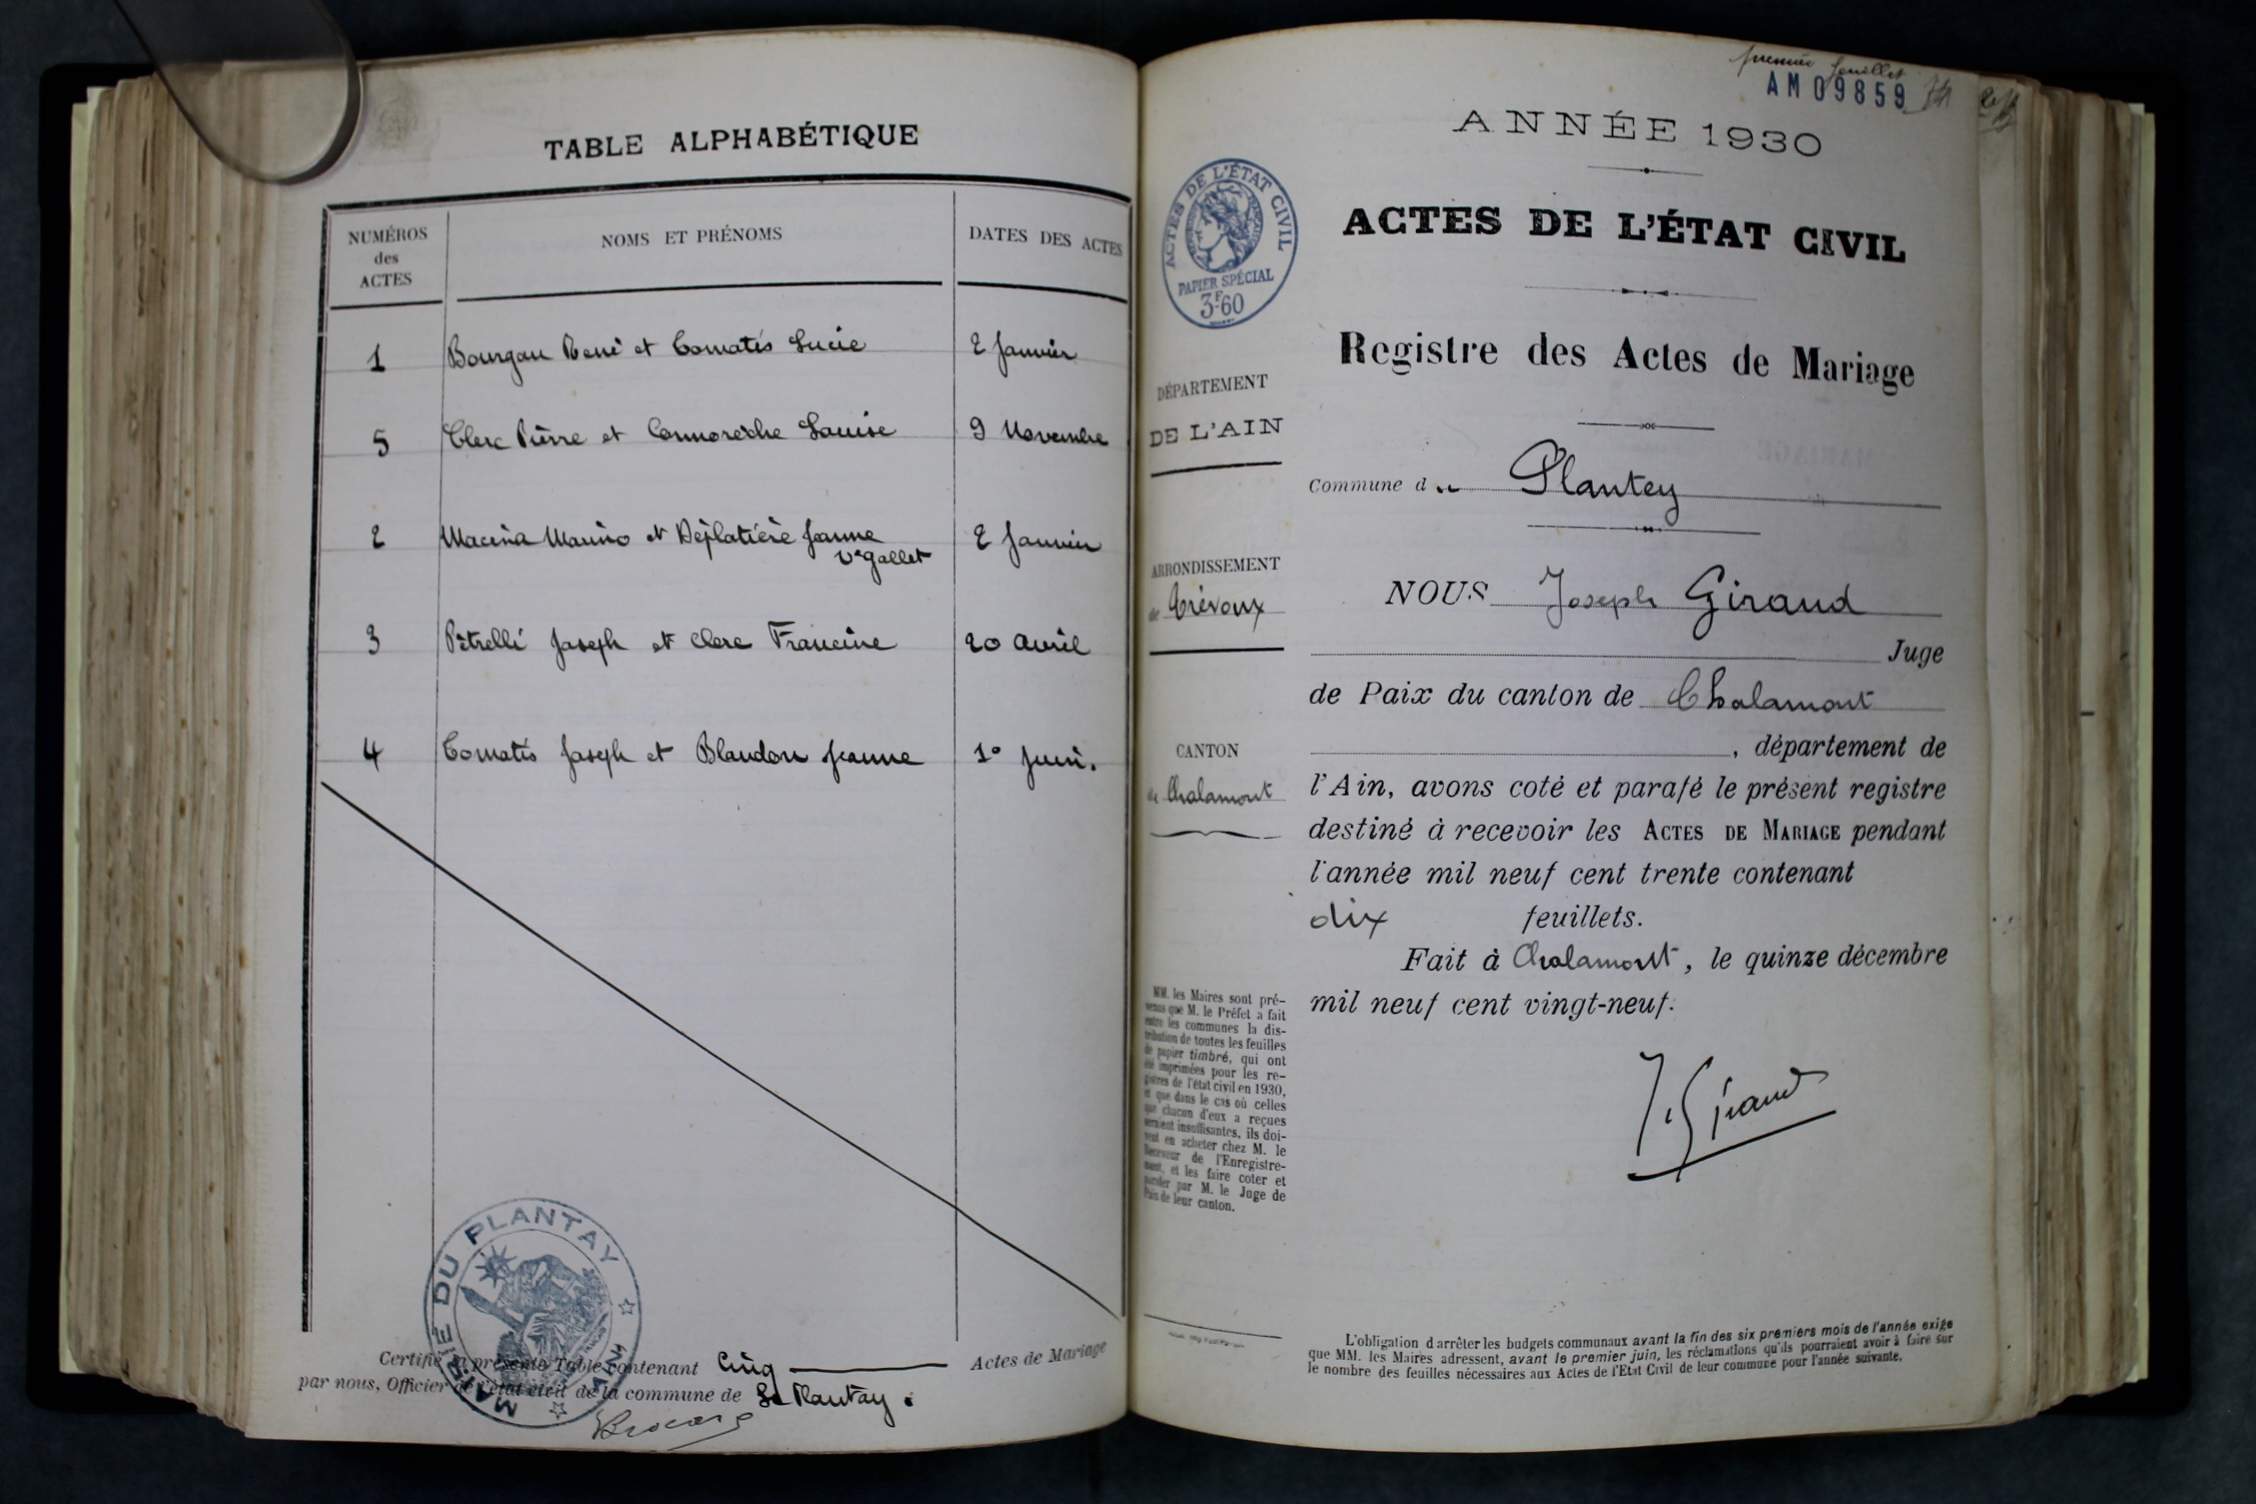 TABLE ALPHABÉTIQUE
NUMÉROS
des
ACTES
NOMS ET PRÉNOMS
DATES DES ACTES
1 Bourgau René et Comatis Lucie 2 Janvier
5 Clerc Pierre et Connorèche Louise 9 Novembre
2 Macina Marino et Déplatière Jeanne 2 Janvier
Ve Gallet
3 Pétrelli Joseph et Clerc Francine 20 Avril
4 Comatis Joseph et Blandon Jeanne 1° Juin.
MAIRIE DU PLANTAY
AIN
Certifié la présente Table contenant Cinq Actes de Mariage
par nous, Officier de l'état civil de la commune de Le Plantay.
premier feuillet
AM 09859
ANNÉE 1930
ACTES DE L'ÉTAT CIVIL
PAPIER SPÉCIAL
3F60
ACTES DE L'ÉTAT CIVIL
Registre des Actes de Mariage
DÉPARTEMENT
DE L'AIN
Commune de Plantey
ARRONDISSEMENT
de Trévoux
NOUS Joseph Giraud
Juge
de Paix du canton de Chalamont
CANTON
de Chalamont
, département de
l'Ain, avons coté et parafé le présent registre
destiné à recevoir les ACTES DE MARIAGE pendant
l'année mil neuf cent trente contenant
dix feuillets.
Fait à Chalamont, le quinze décembre
mil neuf cent vingt-neuf.
J. Giraud
MM. les Maires sont pré-
venus que M. le Préfet a fait
entre les communes la dis-
tribution de toutes les feuilles
de papier timbré, qui ont
été imprimées pour les re-
gistres de l'état civil en 1930,
et que dans le cas où celles
que chacun d'eux a reçues
seraient insuffisantes, ils doi-
vent en acheter chez M. le
Receveur de l'Enregistre-
ment, et les faire coter et
parafer par M. le Juge de
Paix de leur canton.
L'obligation d'arrêter les budgets communaux avant la fin des six premiers mois de l'année exige
que MM. les Maires adressent, avant le premier juin, les réclamations qu'ils pourraient avoir à faire sur
le nombre des feuilles nécessaires aux Actes de l'Etat Civil de leur commune pour l'année suivante.